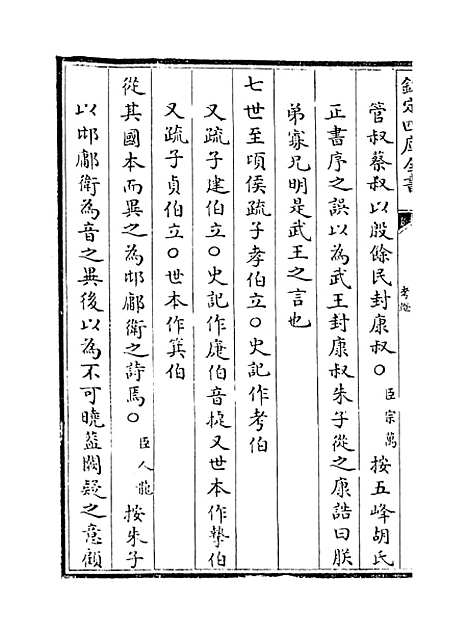 欽定四庫全書
考證
管叔蔡叔以殷餘民封康叔○臣宗萬按五峰胡氏
正書序之誤以為武王封康叔朱子從之康誥曰朕
弟寡兄明是武王之言也
七世至頃侯疏子孝伯立○史記作考伯
又疏子建伯立○史記作㢊伯音捷又世本作摯伯
又疏子貞伯立○世本作箕伯
從其國本而異之為邶鄘衛之詩焉○臣人龍按朱子
以邶鄘衛為音之異後以為不可曉葢闕疑之意顧